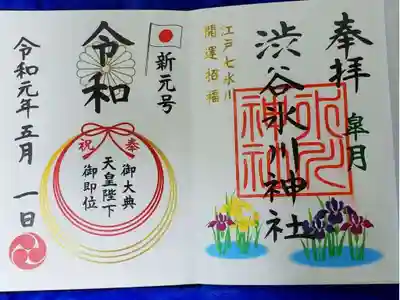 奉拝
皐月
渋谷氷川神社
氷川神社
江戸七氷川
開運招福
新元号
令和
奉祝
御大典
天皇陛下
御即位
令和元年五月一日